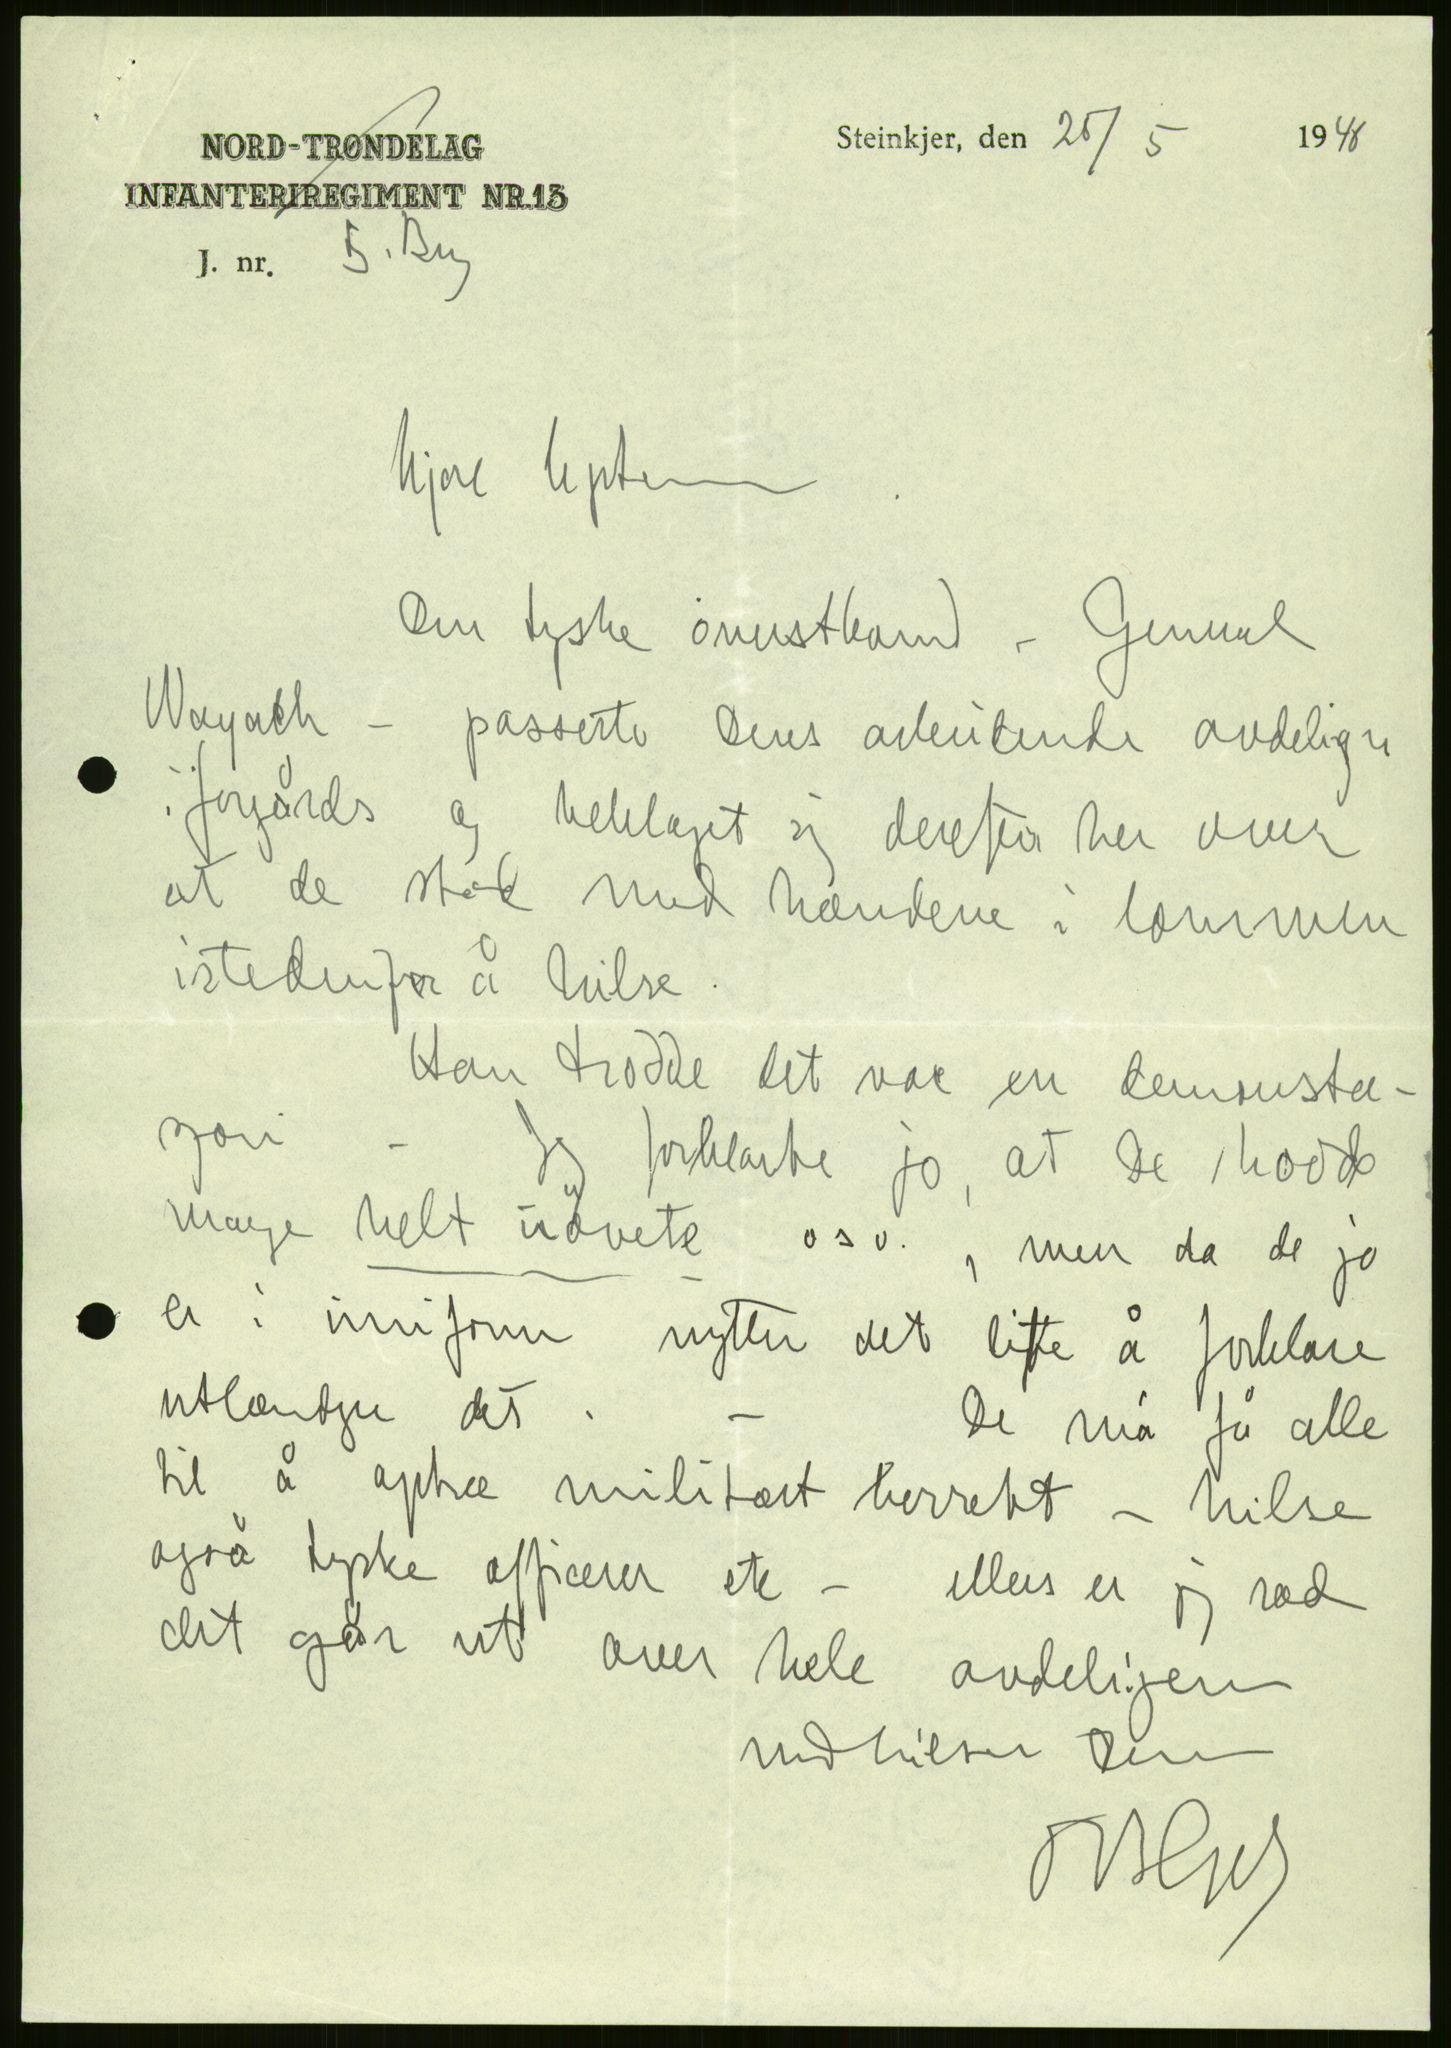 NORD-TRØNDELAG
INFANTERIREGIMENT NR.13
Steinkjer, den 25/5 1940
J. nr. 5. Brig
Kjære kaptein
Den tyske øverstkomd - General
Woyach - passerte Deres arbeidende avdelinger
iforgårds og beklaget sig derefter her over
at de stod med hændene i lommen
istedenfor å hilse.
Han trodde det var en demonstra-
sjon - Jeg forklarte jo, at De hadde
mange helt uøvete osv., men da de jo
er i uniform nytter det lite å forklare
utlændger det. - De må få alle
til å optræ militært korrekt - hilse
også tyske officerer etc - ellers er jeg ræd
det går ut over hele avdelingen
med hilsen Deres